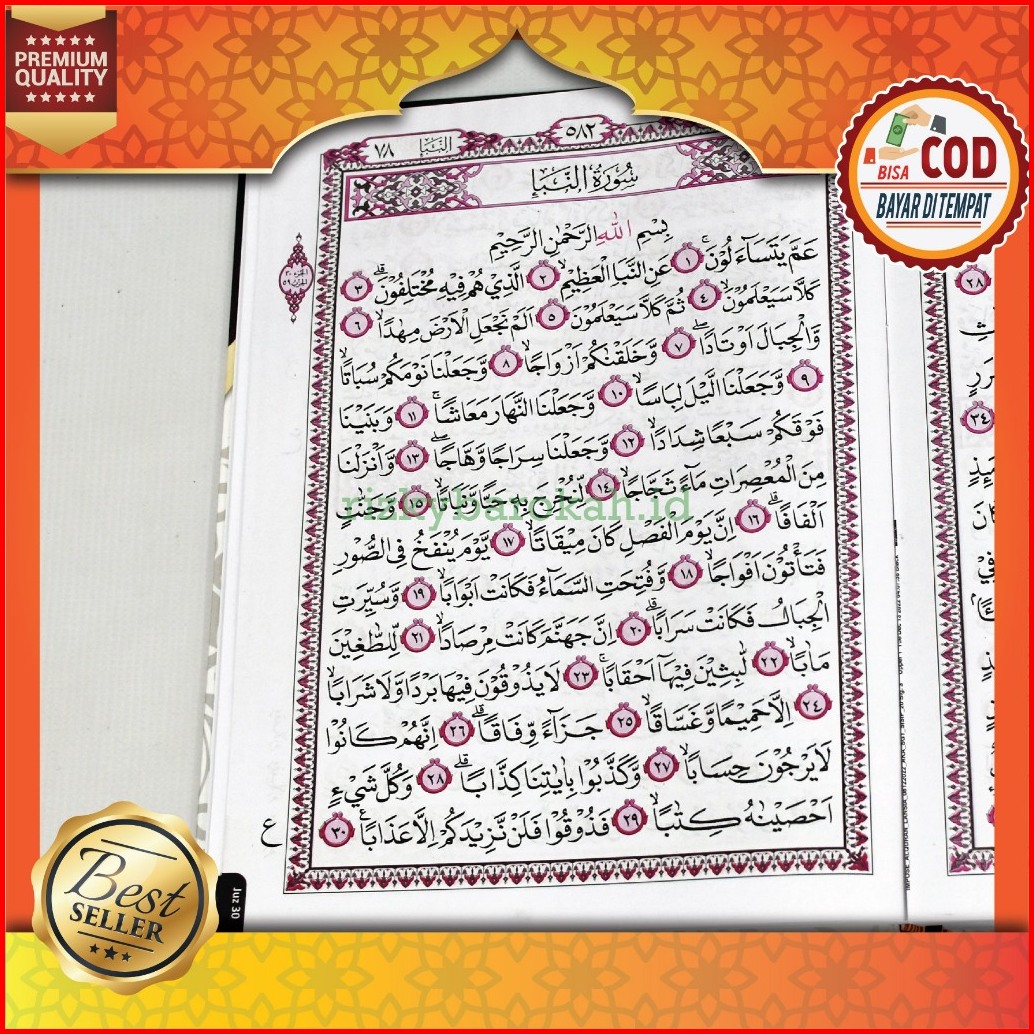 PREMIUM
QUALITY
BISA
COD
BAYAR DI TEMPAT
٧٨
النَّبَإ
٥٨٢
سُورَةُ النَّبَإِ
بِسْمِ اللّٰهِ الرَّحْمٰنِ الرَّحِيْمِ
عَمَّ يَتَسَاۤءَلُوْنَۚ ١ عَنِ النَّبَاِ الْعَظِيْمِۙ ٢ الَّذِيْ هُمْ فِيْهِ مُخْتَلِفُوْنَۗ ٣
كَلَّا سَيَعْلَمُوْنَۙ ٤ ثُمَّ كَلَّا سَيَعْلَمُوْنَ ٥ اَلَمْ نَجْعَلِ الْاَرْضَ مِهٰدًاۙ ٦
وَّالْجِبَالَ اَوْتَادًاۖ ٧ وَّخَلَقْنٰكُمْ اَزْوَاجًاۙ ٨ وَّجَعَلْنَا نَوْمَكُمْ سُبَاتًاۙ
٩ وَّجَعَلْنَا الَّيْلَ لِبَاسًاۙ ١٠ وَّجَعَلْنَا النَّهَارَ مَعَاشًاۚ ١١ وَبَنَيْنَا
فَوْقَكُمْ سَبْعًا شِدَادًاۙ ١٢ وَّجَعَلْنَا سِرَاجًا وَّهَّاجًاۖ ١٣ وَّاَنْزَلْنَا
مِنَ الْمُعْصِرٰتِ مَاۤءً ثَجَّاجًاۙ ١٤ لِّنُخْرِجَ بِهٖ حَبًّا وَّنَبَاتًاۙ ١٥ وَّجَنّٰتٍ
اَلْفَافًاۗ ١٦ اِنَّ يَوْمَ الْفَصْلِ كَانَ مِيْقَاتًاۙ ١٧ يَّوْمَ يُنْفَخُ فِى الصُّوْرِ
فَتَأْتُوْنَ اَفْوَاجًاۙ ١٨ وَّفُتِحَتِ السَّمَاۤءُ فَكَانَتْ اَبْوَابًاۙ ١٩ وَّسُيِّرَتِ
الْجِبَالُ فَكَانَتْ سَرَابًاۗ ٢٠ اِنَّ جَهَنَّمَ كَانَتْ مِرْصَادًاۙ ٢١ لِّلطّٰغِيْنَ
مَاٰبًاۙ ٢٢ لّٰبِثِيْنَ فِيْهَآ اَحْقَابًاۚ ٢٣ لَا يَذُوْقُوْنَ فِيْهَا بَرْدًا وَّلَا شَرَابًاۙ
٢٤ اِلَّا حَمِيْمًا وَّغَسَّاقًاۙ ٢٥ جَزَاۤءً وِّفَاقًاۗ ٢٦ اِنَّهُمْ كَانُوْا
لَا يَرْجُوْنَ حِسَابًاۙ ٢٧ وَّكَذَّبُوْا بِاٰيٰتِنَا كِذَّابًاۗ ٢٨ وَكُلَّ شَيْءٍ
اَحْصَيْنٰهُ كِتٰبًاۙ ٢٩ فَذُوْقُوْا فَلَنْ نَّزِيْدَكُمْ اِلَّا عَذَابًاࣖ ٣٠
ع
الجزء ٣٠
الحزب ٥٩
Juz 30
riskybarokah.id
٢٨
٣٤
BEST
SELLER